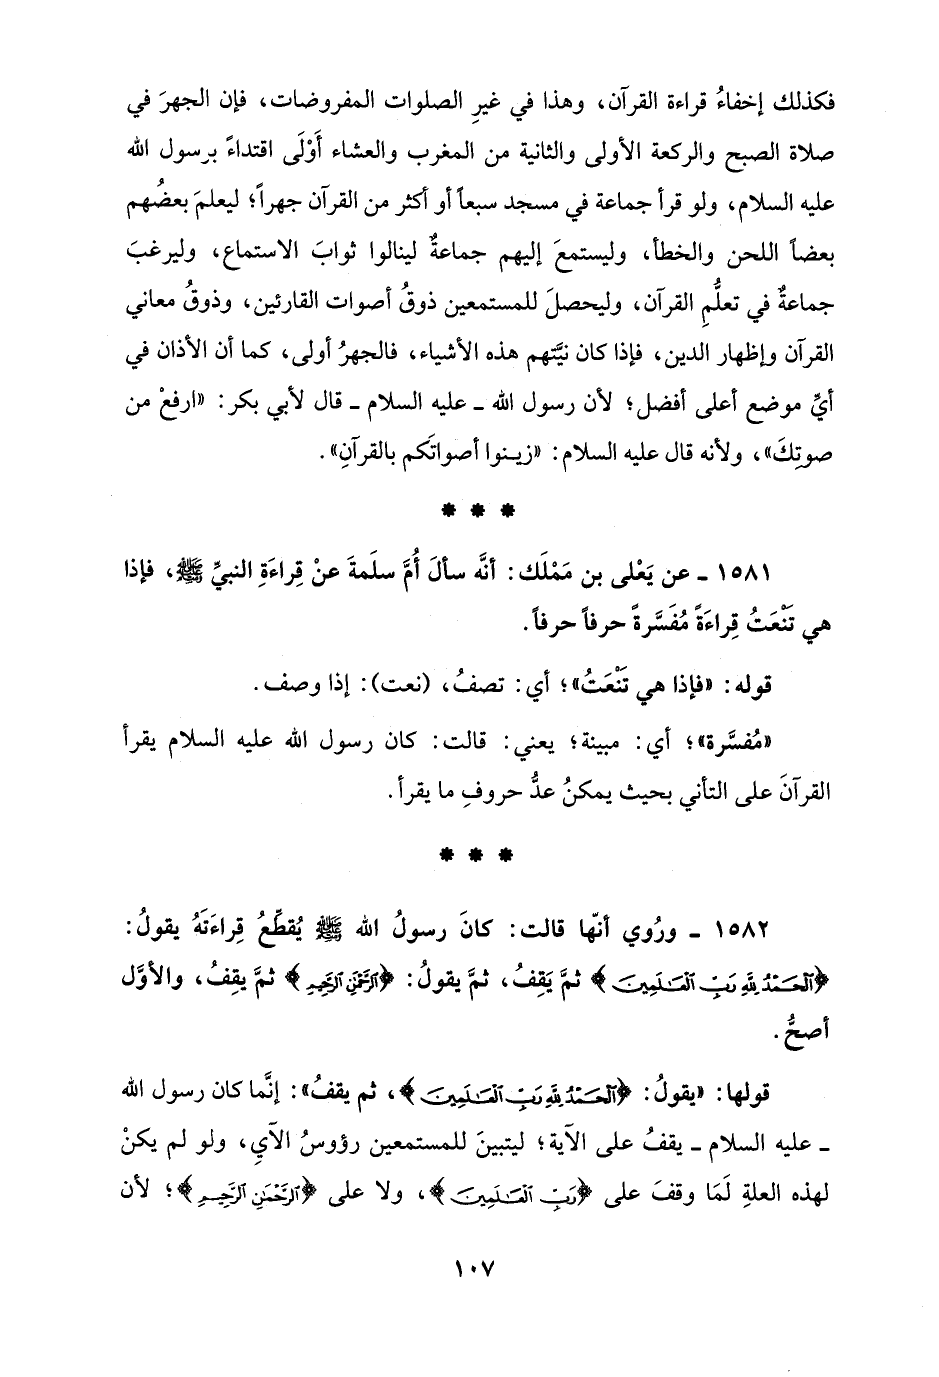 فكذلك إخفاءُ قراءة القرآن، وهذا في غيرِ الصلوات المفروضات، فإن الجهرَ في
صلاة الصبح والركعة الأولى والثانية من المغرب والعشاء أَوْلَى اقتداءً برسول الله
عليه السلام، ولو قرأ جماعة في مسجد سبعاً أو أكثر من القرآن جهراً؛ ليعلمَ بعضُهم
بعضاً اللحن والخطأ، وليستمعَ إليهم جماعةٌ لينالوا ثوابَ الاستماع، وليرغبَ
جماعةٌ في تعلُّمِ القرآن، وليحصلَ للمستمعين ذوقُ أصوات القارئين، وذوقُ معاني
القرآن وإظهار الدين، فإذا كان نيَّتهم هذه الأشياء، فالجهرُ أولى، كما أن الأذان في
أيِّ موضع أعلى أفضل؛ لأن رسول الله ـ عليه السلام ـ قال لأبي بكر: «ارفعْ من
صوتِكَ»، ولأنه قال عليه السلام: «زينوا أصواتَكم بالقرآنِ».
* * *
١٥٨١ ـ عن يَعْلى بن مَمْلَك: أنَّه سألَ أُمَّ سلَمةَ عنْ قِراءَةِ النبيِّ ﷺ، فإذا
هي تَنْعَتُ قِراءَةً مُفَسَّرةً حرفاً حرفاً.
قوله: «فإذا هي تَنْعَتُ»؛ أي: تصفُ، (نعت): إذا وصف.
«مُفسَّرة»؛ أي: مبينة؛ يعني: قالت: كان رسول الله عليه السلام يقرأ
القرآنَ على التأني بحيث يمكنُ عدُّ حروفِ ما يقرأ.
* * *
١٥٨٢ ـ ورُوي أنّها قالت: كانَ رسولُ الله ﷺ يُقطِّعُ قِراءَتَهُ يقولُ:
﴿الْحَمْدُ لِلَّهِ رَبِّ الْعَالَمِينَ﴾ ثمَّ يَقِفُ، ثمَّ يقولُ: ﴿الرَّحْمَٰنِ الرَّحِيمِ﴾ ثمَّ يقِفُ، والأوَّل
أصحُّ.
قولها: «يقولُ: ﴿الْحَمْدُ لِلَّهِ رَبِّ الْعَالَمِينَ﴾، ثم يقفُ»: إنَّما كان رسول الله
ـ عليه السلام ـ يقفُ على الآية؛ ليتبينَ للمستمعين رؤوسُ الآيِ، ولو لم يكنْ
لهذه العلةِ لَمَا وقفَ على ﴿رَبِّ الْعَالَمِينَ﴾، ولا على ﴿الرَّحْمَٰنِ الرَّحِيمِ﴾؛ لأن
١٠٧